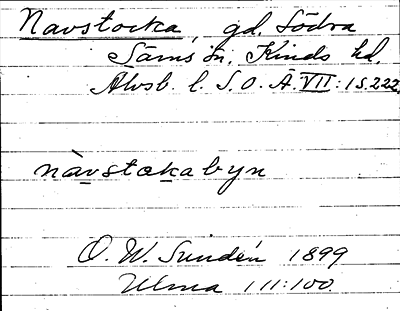 Navstocka, gd. Södra
Säms sn. Kinds hd.
Älvsb. l. S.O.Ä. VII:1 s. 222.
nàvstokabyn
O. W. Sundén 1899
Ulma 111:100.